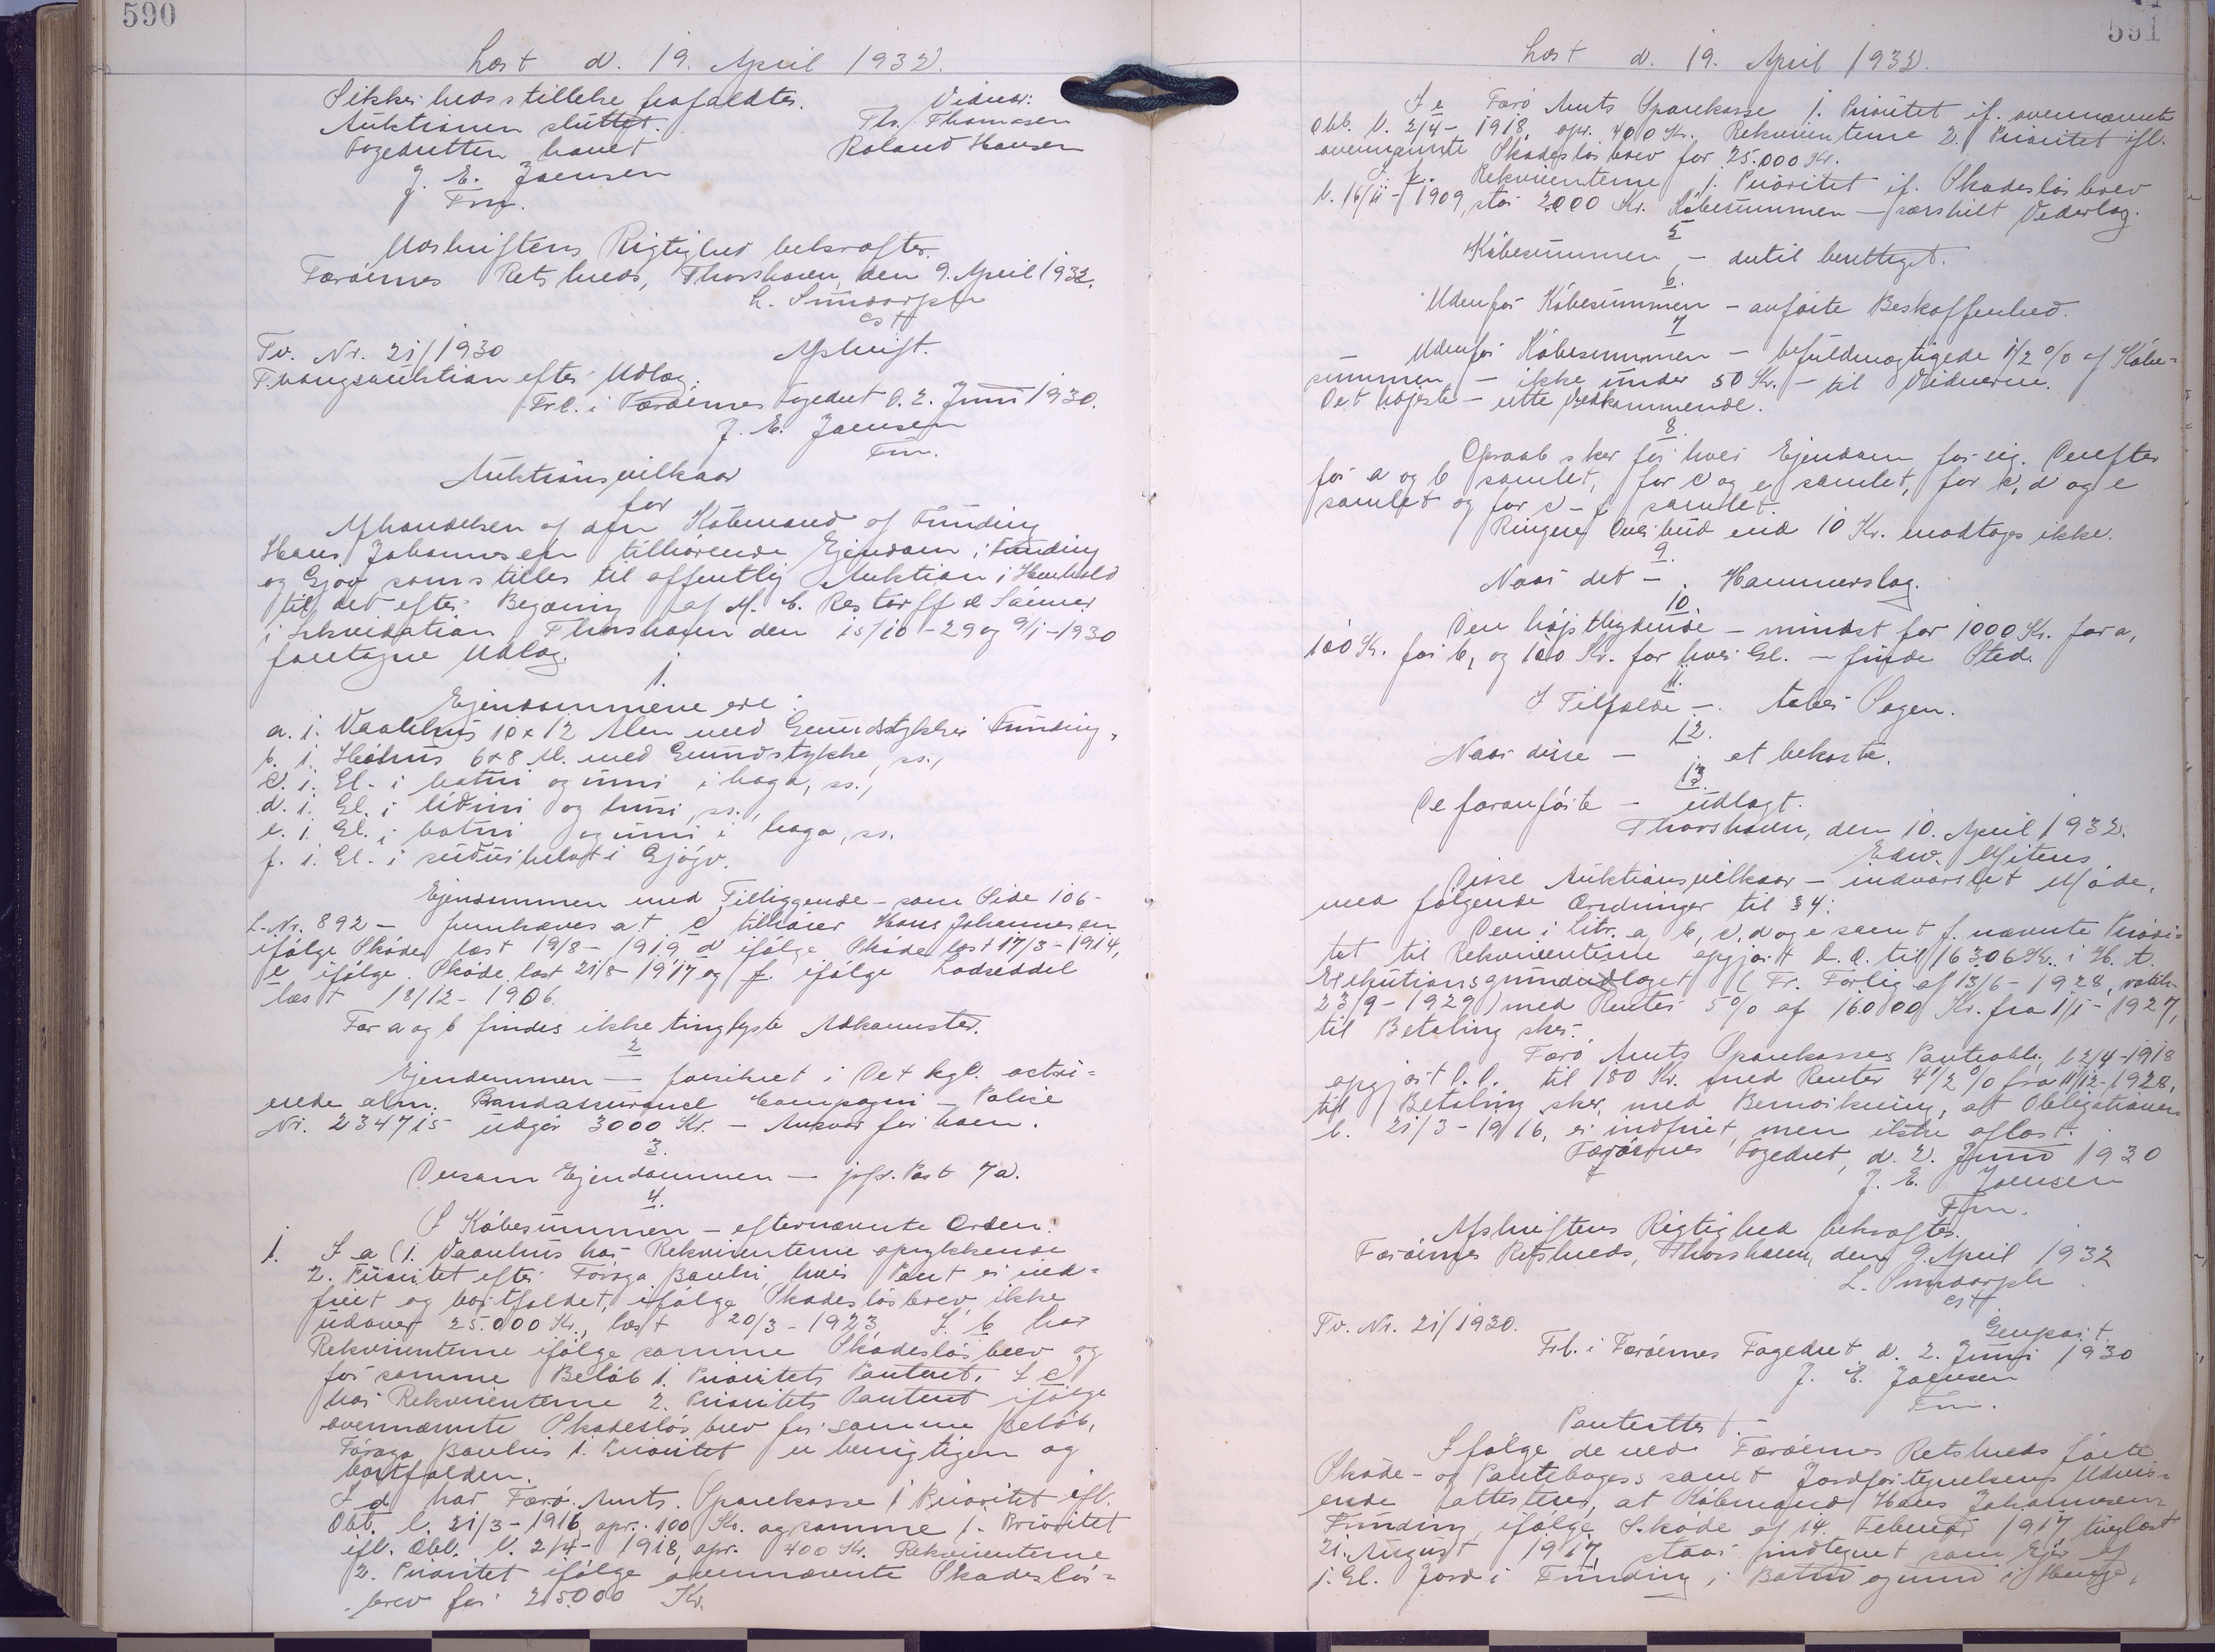 590
Læst d. 19. April 1932.
Sikkerhedsstillelse frafaldtes.
Auktionen sluttet.
Fogedretten hævet
J. E. Joensen
Fm.
Vidner:
Ths. Thomasen
Roland Hansen
Udskriftens Rigtighed bekræftes.
Færöernes Retskreds, Thorshavn, den 9. April 1932.
L. Simdorph
cst
Tv. Nr. 21/1930
Afskrift.
Tvangsauktion efter Udlæg.
Frl. i Færöernes Fogedret d. 2. Juni 1930.
J. E. Joensen
Fm.
Auktionsvilkaar
for
Afhændelsen af den Købmand af Funding
Hans Johannesen tilhørende Ejendom i Funding
og Gjov som stilles til offentlig Auktion i Henhold
til det efter Begæring af M. C. Restorff & Sönner
i Likvidation Thorshavn den 15/10-29 og 9/1-1930
foretagne Udlæg.
1.
Ejendommene ere:
a. 1. Vaanhus 10 x 12 Alen med Grundstykke i Funding,
b. 1. Höhus 6x8 Al. med Grundstykke, ss.,
c. 1. Gl. i botni og unni i haga, ss.,
d. 1. Gl. i lidini og húsi, ss.,
e. 1. Gl. i botni og unni i haga, ss.
f. 1. Gl. i sudurhelvt i Gjógv.
Ejendommen med Tilliggende - som Side 106-
L. Nr. 892 - fremhæves at c tilhører Hans Johannesen
ifølge Skøde læst 19/8-1919 d ifølge Skøde læst 17/3-1914,
e ifølge Skøde læst 21/8-1917 og f. ifølge Lodseddel
læst 18/12-1906.
For a og b findes ikke tinglyste Adkomster.
2
Ejendommen — forsikret i Det kgl. octroi=
erede alm. Brandassurance Compagni - Police
Nr. 234715 udgör 3000 Kr. - Ansvar for ham.
3.
Dersom Ejendommen — jofr. Post 7a.
4.
I Købesummen - efternævnte Orden:
1. I a (1. Vaanhus har Rekvirenterne oprykkende
2. Prioritet efter Föroya Banki, hvis Pant er ind=
friet og bortfaldet, ifølge Skadesløsbrev, ikke
udover 25.000 Kr., læst 20/3-1923. I b har
Rekvirenterne ifølge samme Skadesløsbrev og
for samme Beløb 1. Prioritets Panteret. I c
har Rekvirenterne 2. Prioritets Panteret ifølge
ovennævnte Skadesløsbrev for samme Beløb,
Föroya Bankis 1. Prioritet er berigtigen og
bortfalden.
I d har Færö Amts Sparekasse 1 Prioritet ifl.
Obl. l. 21/3-1916 opr. 100 Kr. og samme 1. Prioritet
ifl. Obl. l. 2/4-1918, opr. 400 Kr. Rekvirenterne
2. Prioritet ifølge ovennævnte Skadeslös=
brev for 25.000 Kr.
591
Læst d. 19. April 1932.
I e Færö Amts Sparekasse 1. Prioritet if. ovennævnte
Obl. l. 2/4-1918, opr. 400 Kr. Rekvirenterne 2. Prioritet ifl.
ovennævnte Skadesløsbrev for 25.000 Kr.
I f. Rekvirenterne 1. Prioritet if. Skadesløsbrev
l. 16/11-1909, stor 2000 Kr. Købesummen - særskilt Vederlag.
5
Købesummen - dertil berettiget.
6.
Udenfor Købesummen - anførte Beskaffenhed.
7
Udenfor Købesummen - befuldmægtigede 1/2 % af Købe=
summen - ikke under 50 Kr. - til Vidnerne.
Det højeste - rette Vedkommende.
8.
Opraab sker for hver Ejendom for sig. Derefter
for a og b samlet, for c og e samlet, for c, d og e
samlet og for c - f samlet.
Ringere Overbud end 10 Kr. modtages ikke.
9.
Naar det - Hammerslag.
10
Den højstbydende - mindst for 1000 Kr. for a,
100 Kr. for b, og 100 Kr. for hver Gl. - finde Sted.
11.
I Tilfælde - taber Sagen.
12.
Naar disse - at bekoste.
13
De foranførte - udlagt.
Thorshavn, den 10. April 1932.
Edw. Mitens.
Disse Auktionsvilkaar - indvarslet Möde,
med følgende Ændringer til § 4:
Den i Litr. a, b, c, d og e samt f. nævnte Priori=
tet til Rekvirenterne opgjort d. D. til 16306 Kr. i H. t.
Exekutionsgrundlaget (Fr. Forlig af 13/6-1928, vedtk.
23/9-1929) med Renter 5% af 16000 Kr. fra 1/1-1927,
til Betaling sker.
Færö Amts Sparekasses Panteobl. l. 2/4-1918
opgjort d. D. til 180 Kr. med Renter 4 1/2 % fra 11/12-1928,
til Betaling sker, med Bemærkning, at Obligationen
l. 21/3-1916, er indfriet, men ikke aflæst.
Færöernes Fogedret, d. 2. Juni 1930
J. E. Joensen
Fm.
Afskriftens Rigtighed bekræftes.
Færöernes Retskreds, Thorshavn, den 9. April 1932
L. Simdorph
cst
Tv. Nr. 21/1930.
Genpart.
Frl. i Færöernes Fogedret d. 2. Juni 1930
J. E. Joensen
Fm.
Panteattest. -
Ifølge de ved Færöernes Retskreds førte
Skøde- og Pantebøgers samt Jordfortegnelsens Udvis=
ende attesteres, at Købmand Hans Johannesen,
Funding, ifølge Skøde af 14. Februar 1917, tinglæst
21. August 1917, staar indtegnet som Ejer af
1. Gl. Jord i Funding, i Botni og unni i Hauge,